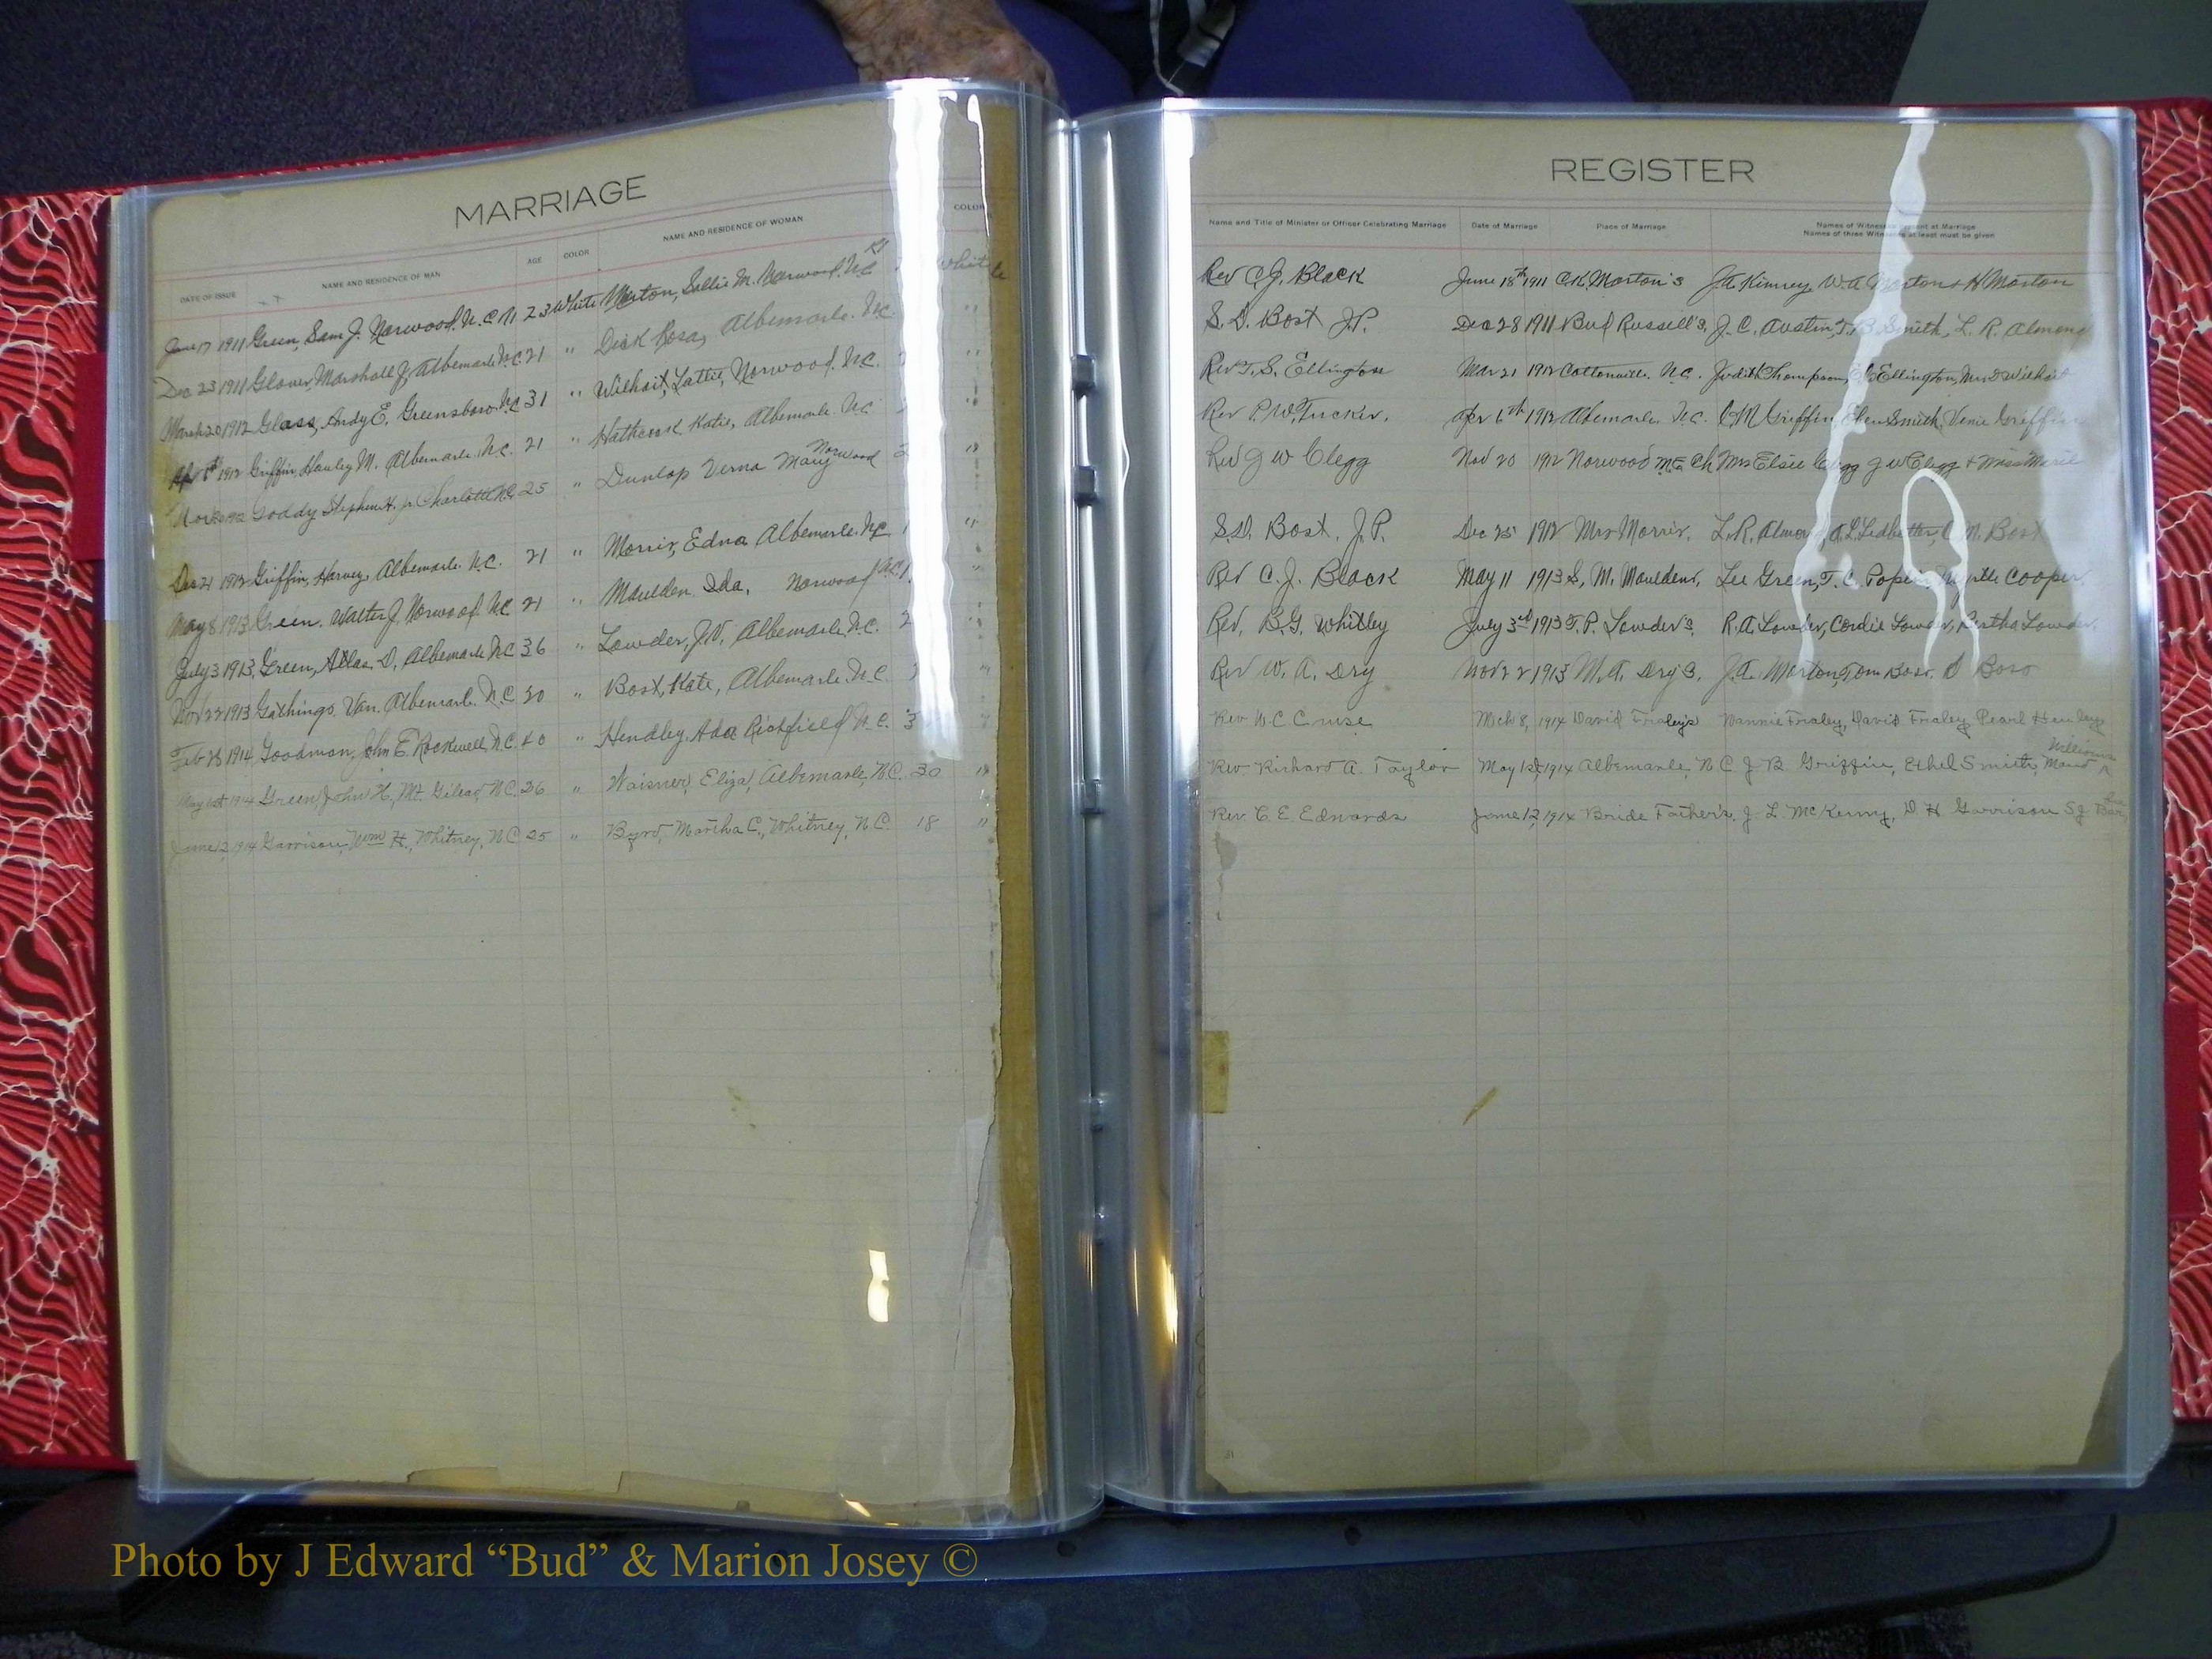 MARRIAGE
DATE OF ISSUE NAME AND RESIDENCE OF MAN AGE COLOR NAME AND RESIDENCE OF WOMAN COLOR
June 17 1911 Green, Sam J. Norwood N.C. 23 White Morton, Sallie M. Norwood N.C. White
Dec 23 1911 Glover, Marshall J, Albemarle N.C. 21 " Dick Rosa, Albemarle. N.C. "
March 20 1912 Glass, Andy E. Greensboro N.C. 31 " Wilhoit, Lattie, Norwood. N.C. "
1912 Griffin, Hauley M. Albemarle. N.C. 21 " Hathcock Katie, Albemarle N.C.
Goddy Stephen H. jr Charlotte N.C. 25 " Dunlap Verna Mary Norwood "
Dec 21 1912 Griffin, Harvey, Albemarle N.C. 21 " Morris, Edna Albemarle. N.C. "
May 8 1913 Green. Walter J. Norwood. N.C. 21 " Maulden Ida, Norwood N.C. "
July 3 1913 Green, Atlas D, Albemarle N.C. 36 " Lowder, J.V, Albemarle N.C. "
Nov 22 1913 Gathings Van. Albemarle. N.C. 30 " Bost, Kate, Albemarle N.C. "
Feb 28 1914 Goodman, John E. Rockwell, N.C. 40 " Hendley, Ada Richfield N.C. "
May 1st 1914 Green, John H, Mt. Gilead N.C. 26 " Waisner, Eliza, Albemarle, N.C. 30 "
June 12, 1914 Garrison, Wm H., Whitney, N.C. 25 " Byrd, Martha C., Whitney, N.C. 18 "
REGISTER
Name and Title of Minister or Officer Celebrating Marriage Date of Marriage Place of Marriage Names of Witnesses present at Marriage
Names of three Witnesses at least must be given
Rev C. J. Black June 18th 1911 C.K. Morton's J.A. Kimrey W.A Morton + H Morton
S. D. Bost J.P. Dec 28 1911 Bud Russell's, J. C. Austin, Smith, L. R. Almond
Rev T. S. Ellington Mar 21 1912 Cottonville. N.C. Judith Thompson, Ellington, Mrs D Wilhoit
Rev P. W. Tucker. Apr 6th 1912 Albemarle, N.C. C M Griffin, Smith, Venie Griffin
Rev J W Clegg Nov 20 1912 Norwood M.E. Ch Mrs Elsie Clegg J W Clegg + Miss Marie
S.D. Bost. J.P. Dec 25 1912 Mrs Morris. L. R. Almond, A. L. Ledbetter, C. N. Bost
Rev C. J. Black May 11 1913 S. M. Mauldens, Lee Green, T. C. Poplin, Myrtle Cooper,
Rev. B.G. Whitley July 3rd 1913 T. P. Lowder's. R. A. Lowder, Cordie Lowder, Bertha Lowder.
Rev W. A. Dry Nov 22 1913 M. A. Dry's. J.A. Morton, Tom
Rev. W C Cruse Mch 8, 1914 David Fraley's Nannie Fraley, David Fraley Pearl Henley
Rev. Richard A. Taylor May 1st 1914 Albemarle, N C J B Griffin, Ethel Smith, Maud Williams
Rev. C. E. Edwards June 12, 1914 Bride Father's. J L McKenny, D H Garrison S J
Photo by J Edward “Bud” & Marion Josey ©